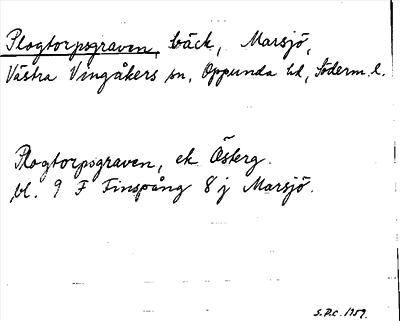 Plogtorpsgraven, bäck, Marsjö,
Västra Vingåkers sn, Oppunda hd, Söderm. l.
Plogtorpsgraven, ek Österg.
bl. 9 F Finspång 8 j Marsjö.
S.R.C. 1959.